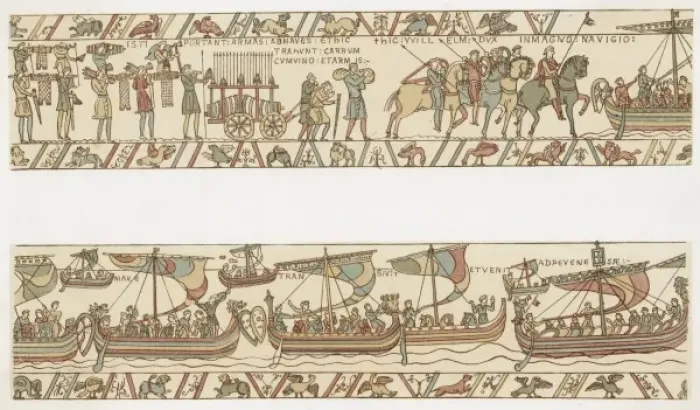 ISTI PORTANT: ARMAS: ADNAVES: ET HIC
TRAHUNT: CARRUM
CVM VINO: ET ARMIS:-
+ HIC: VVILL ELM: DUX IN MAGNO: NAVIGIO:
MARE TRAN SIVIT ET VENIT AD PEVENE SÆ:-